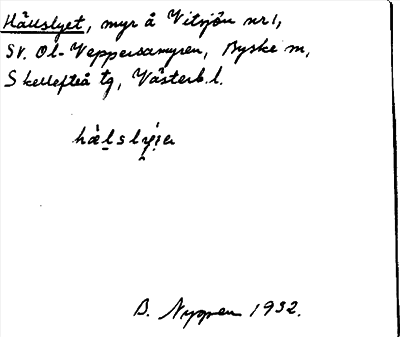 Hällslyet, myr å Vitsjön nr 1,
SV. Ol-Veppersamyren, Byske sn,
Skellefteå tg, Västerb. l.
B. Nyppen 1932.